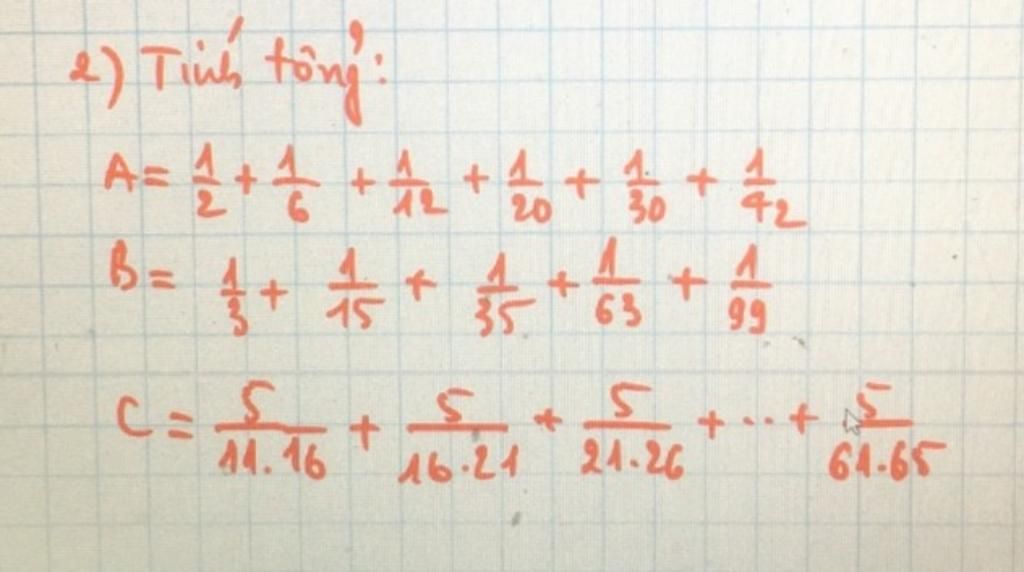 2) Tính tổng:
A = 1/2 + 1/6 + 1/12 + 1/20 + 1/30 + 1/42
B = 1/3 + 1/15 + 1/35 + 1/63 + 1/99
C = 5/11.16 + 5/16.21 + 5/21.26 + ... + 5/61.65